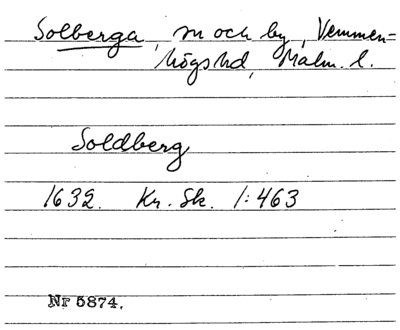 Solberga, sn och by, Vemmen-
högs hd, Malm. l.
Soldberg
1632. Kr. Sk. 1:463
Nr 5874.